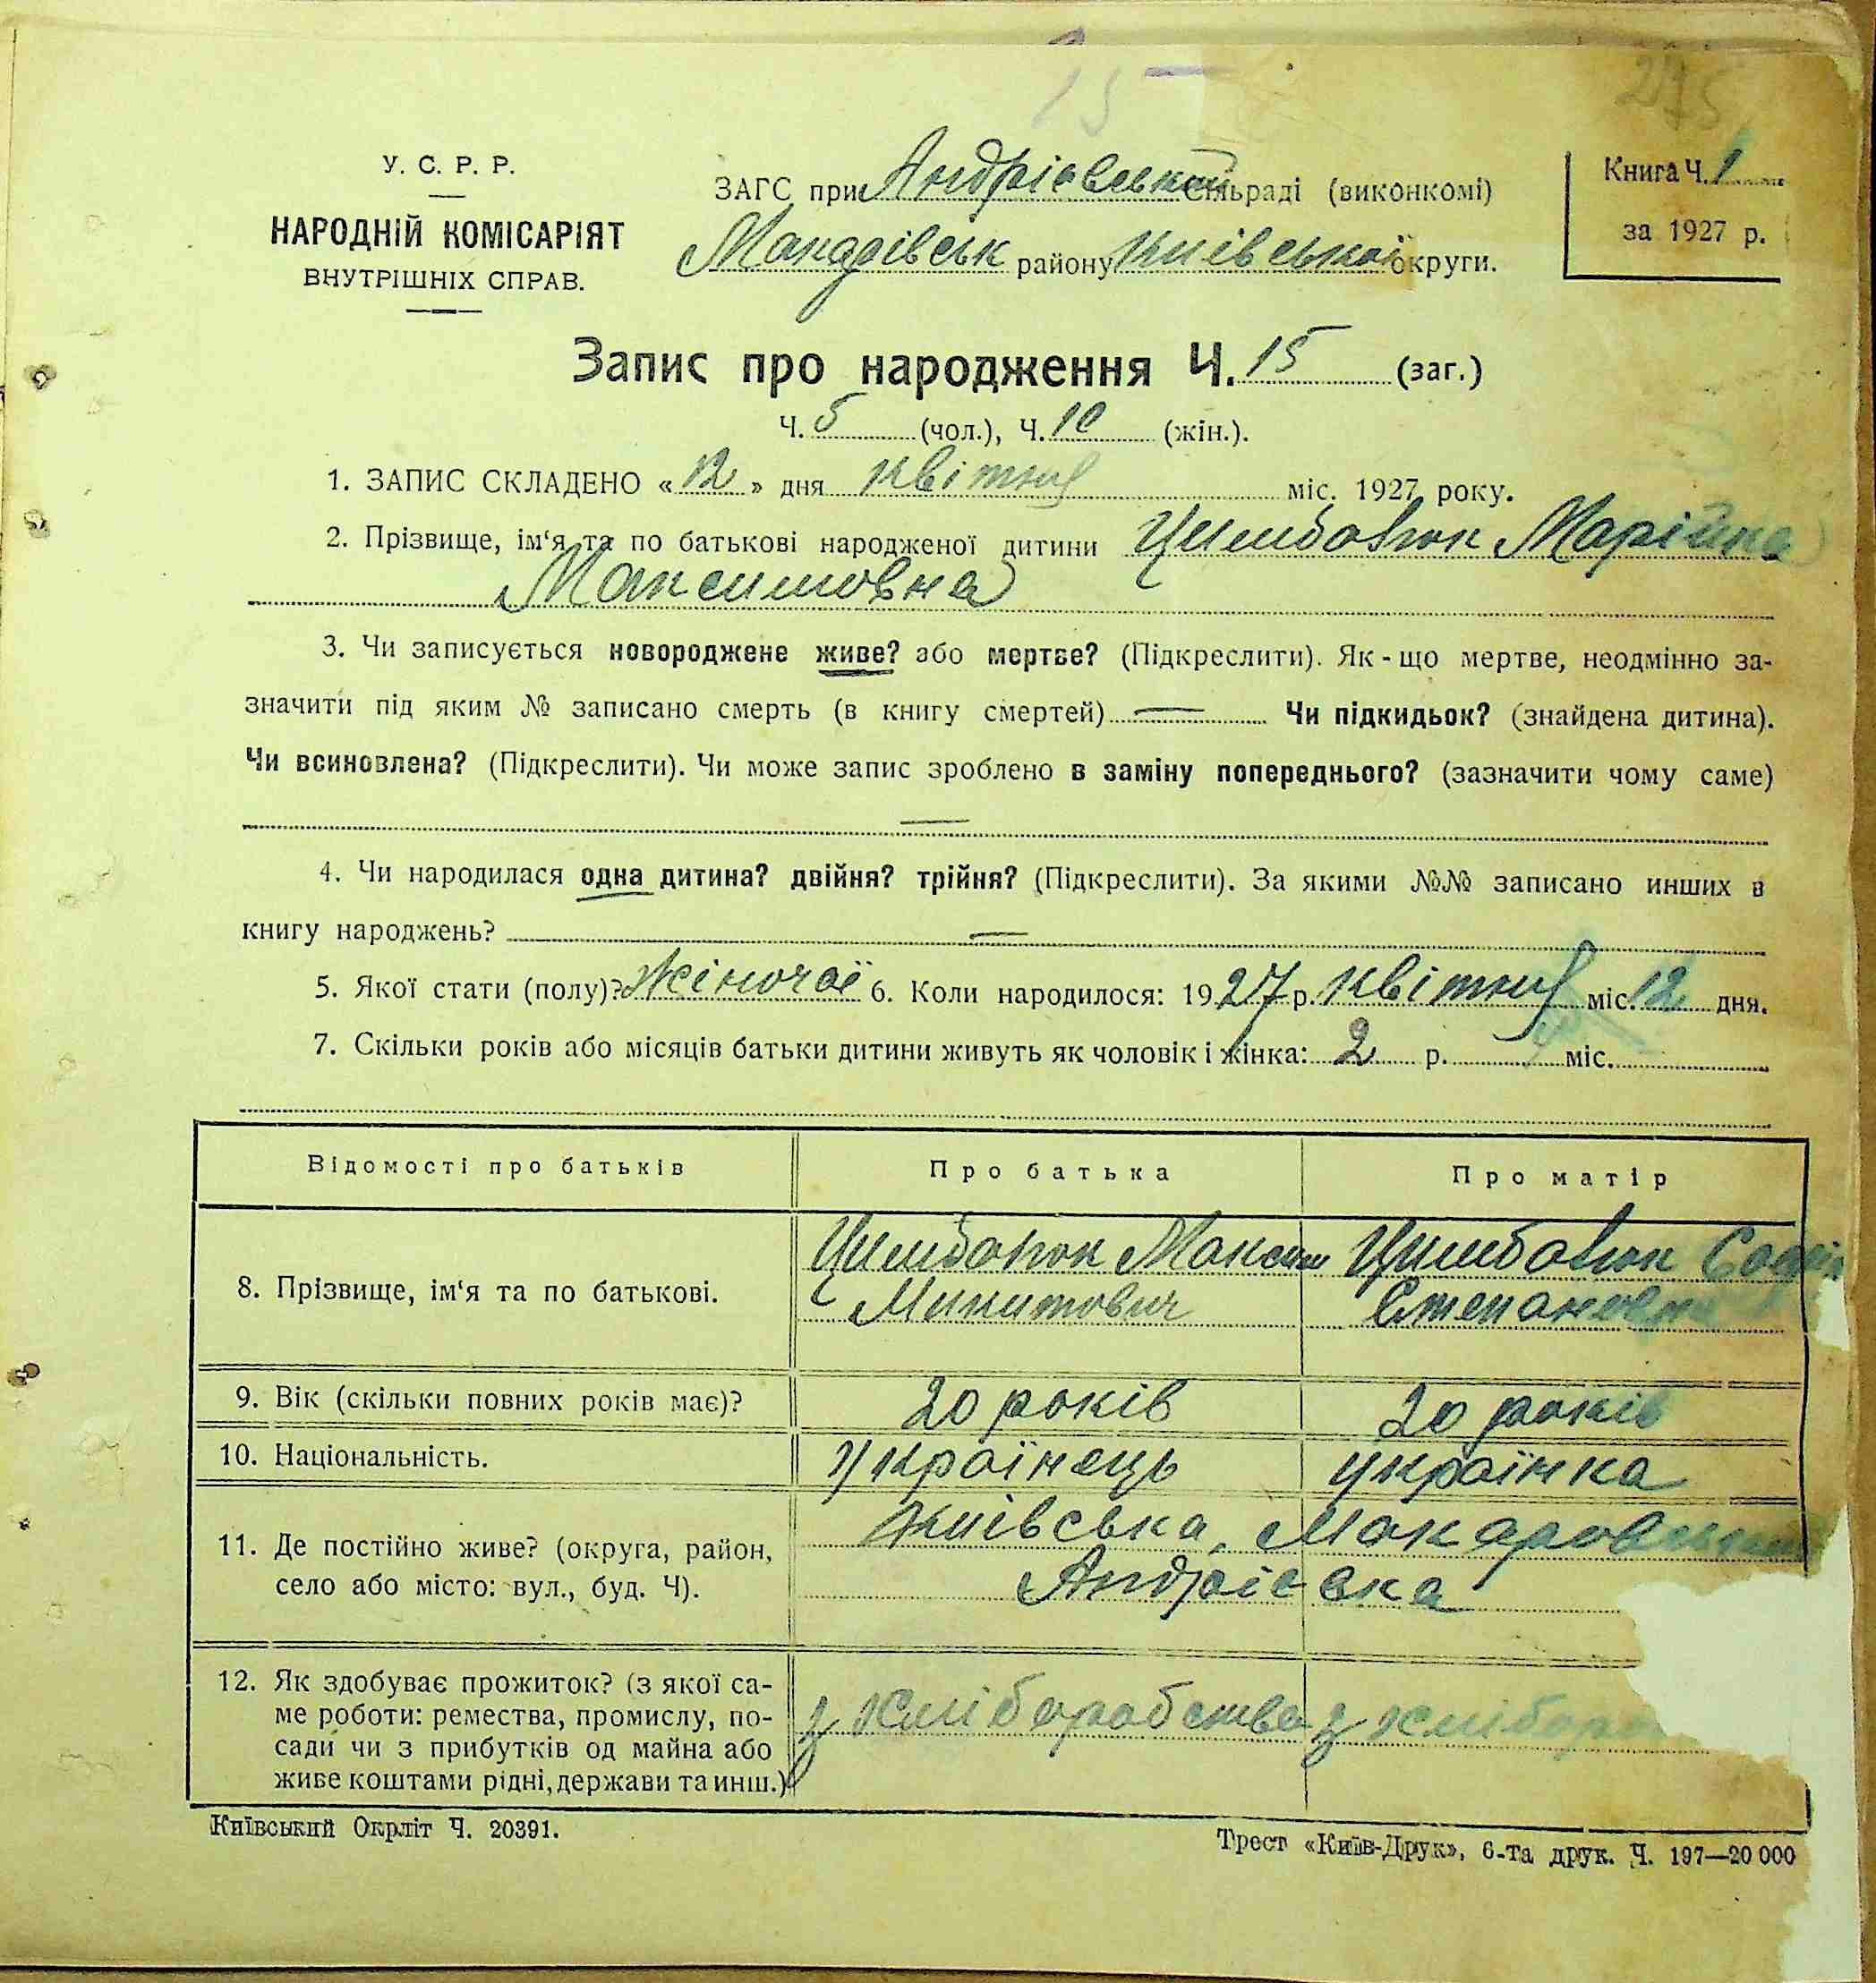 15
275
У. С. Р. Р.
НАРОДНІЙ КОМІСАРІЯТ
ВНУТРІШНІХ СПРАВ.
ЗАГС при Андріевській сільраді (виконкомі)
району Київської округи.
Книга Ч. 1
за 1927 р.
Запис про народження Ч. 15 (заг.)
Ч. 5 (чол.), Ч. 10 (жін.).
1. ЗАПИС СКЛАДЕНО «12» дня квітня міс. 1927 року.
2. Прізвище, ім‘я та по батькові народженої дитини Цимбалюк Марійка
Максимовна
3. Чи записується новороджене живе? або мертве? (Підкреслити). Як-що мертве, неодмінно за-
значити під яким № записано смерть (в книгу смертей) — Чи підкидьок? (знайдена дитина).
Чи всиновлена? (Підкреслити). Чи може запис зроблено в заміну попереднього? (зазначити чому саме)
—
4. Чи народилася одна дитина? двійня? трійня? (Підкреслити). За якими №№ записано инших в
книгу народжень? —
5. Якої стати (полу)? Жіночої 6. Коли народилося: 1927 р. квітня міс. 12 дня.
7. Скільки років або місяців батьки дитини живуть як чоловік і жінка: 2 р. міс.
Відомості про батьків Про батька Про матір
8. Прізвище, ім‘я та по батькові.
Цимбалюк Максим Цимбалюк Софія
Микитович Степановна
9. Вік (скільки повних років має)? 20 років 20 років
10. Національність. Українець українка
11. Де постійно живе? (округа, район,
село або місто: вул., буд. Ч).
Київська, Макаровський
Андріевка
12. Як здобуває прожиток? (з якої са-
ме роботи: ремества, промислу, по-
сади чи з прибутків од майна або
живе коштами рідні, держави та инш.)
з хліборобства з хлібороб
Київський Окрліт Ч. 20391.
Трест «Київ-Друк», 6-та друк. Ч. 197—20 000